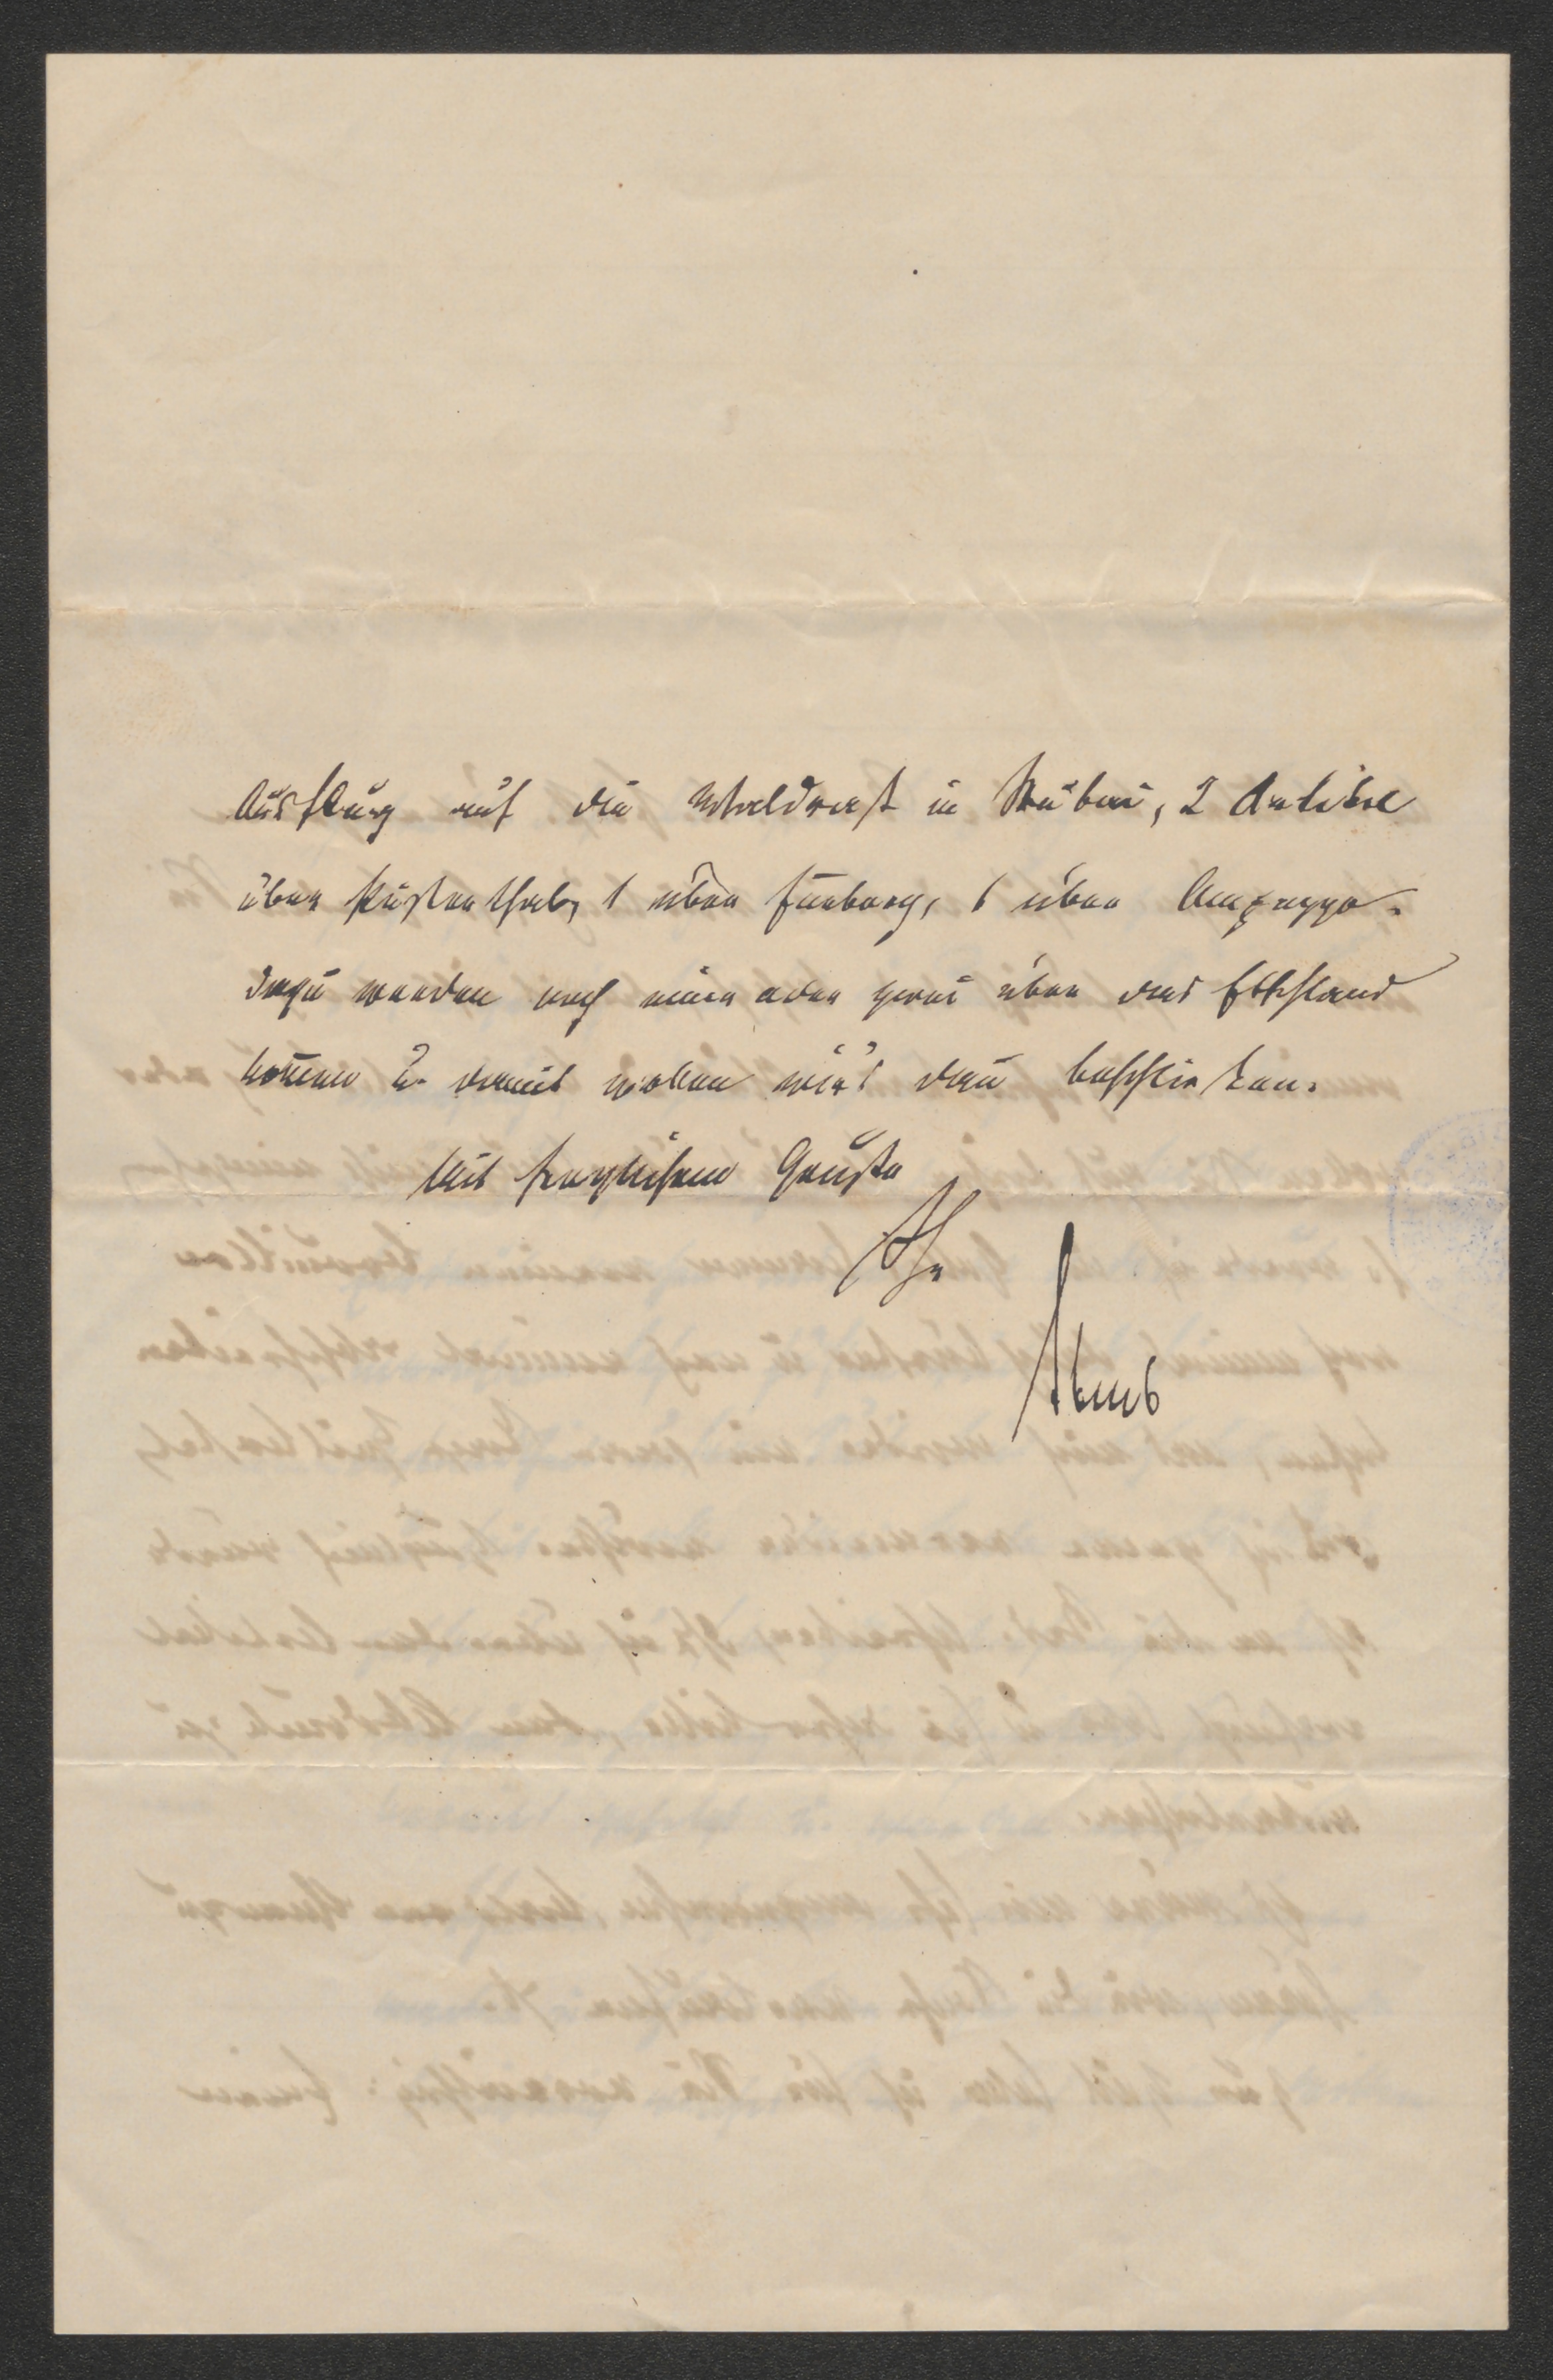 Ausflug auf die Waldrast in Stubai, 2 Artikel
über Pusterthal, 1 über Enneberg, 1 über Ampezzo.
dazu werden noch einer oder zwei über das Etschland
kommen u. damit wollen wir's dan beschließen.
Mit herzlichem Gruße
Ihr
Steub